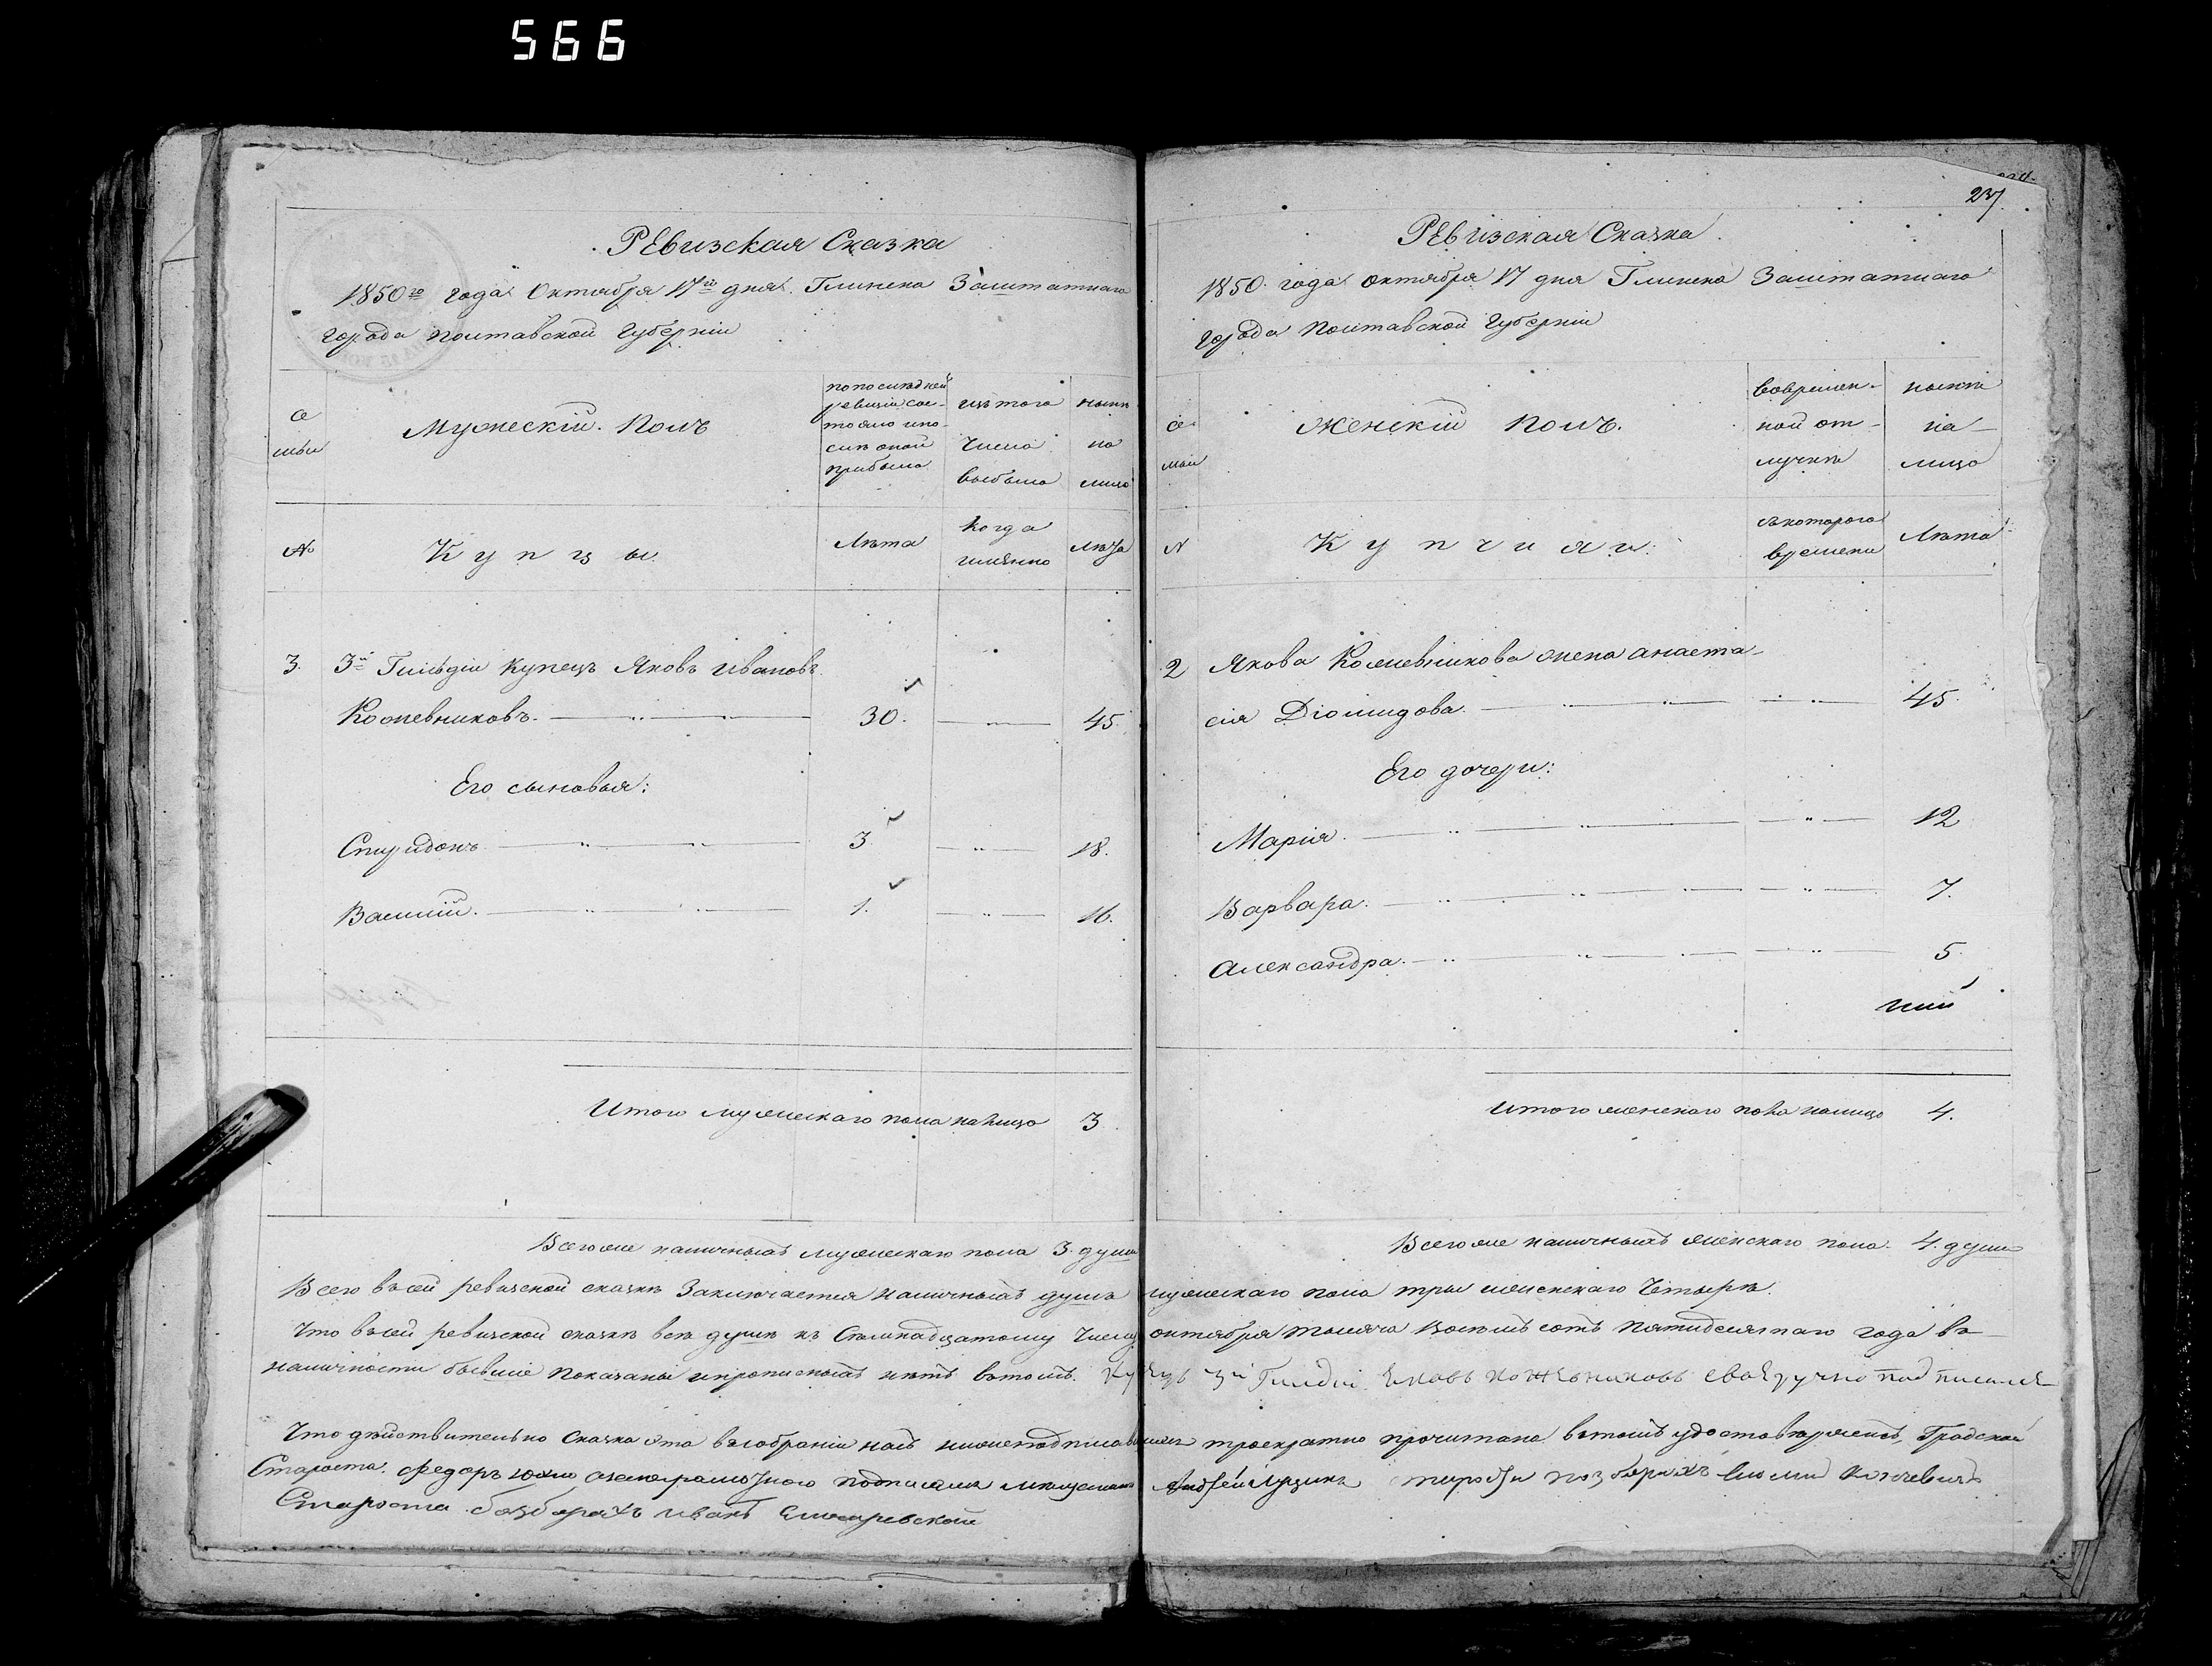 566
Ревизская Сказка
1850го года Октября 17го дня. Глинска Заштатнаго
города Полтавской Губерніи
Се
мьи
Мужескій Полъ
по последней
ревизіи сос-
тояло и по-
слѣ оной
прибыло
изъ того
числа
выбыло
нынѣ
на
лицо
№
Купцы
Лѣта
Когда
имянно
Лѣта
3. 3й Гильдіи Купецъ Яковъ Ивановъ
Кожевниковъ. 30. 45.
Его сыновья:
Спиридонъ 3 18.
Василій. 1. 16.
Итого мужескаго пола налицо 3
Всего же наличныхъ мужескаго пола 3. души
237
Ревизская Сказка
1850. года октября 17 дня Глинска Заштатнаго
города Полтавской Губерніи
Се
мьи
Женскій Полъ.
во времен-
ной от-
лучкѣ
нынѣ
на-
лицо
№
Купчихи:
съ котораго
времени
Лѣта
2 Якова Кожевникова жена Анаста-
сія Діомидова 45.
Его дочери:
Марія. 12
Варвара. 7.
Александра. 5.
Итого женскаго пола налицо 4.
Всего же наличныхъ женскаго пола. 4. души
Всего въ сей ревизской сказкѣ Заключается наличныхъ душъ мужескаго пола три женскаго Четыре.
Что въ сей ревизской сказкѣ всѣ души къ Семнадцатому Числу октября тысяча восемь сотъ пятидесятаго года въ
наличности бывшіе показаны и прописныхъ нѣтъ въ томъ. Купецъ 3й Гилдіи Яковъ Кожевниковъ своеручно подписался
Что дѣйствительно Сказка эта въ собраніи насъ нижеподписавшихся троекратно прочитана въ томъ удостовѣряемъ, Градской
Староста. Федоръ подписался
Староста Иванъ